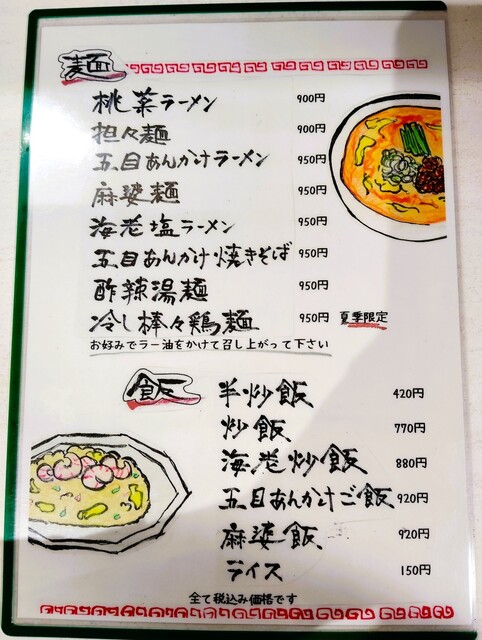 麺
桃菜ラーメン 900円
担々麺 900円
五目あんかけラーメン 950円
麻婆麺 950円
海老塩ラーメン 950円
五目あんかけ焼きそば 950円
酢辣湯麺 950円
冷し棒々鶏麺 950円 夏季限定
お好みでラー油をかけて召し上がって下さい
飯
半炒飯 420円
炒飯 770円
海老炒飯 880円
五目あんかけご飯 920円
麻婆飯 920円
ライス 150円
全て税込み価格です